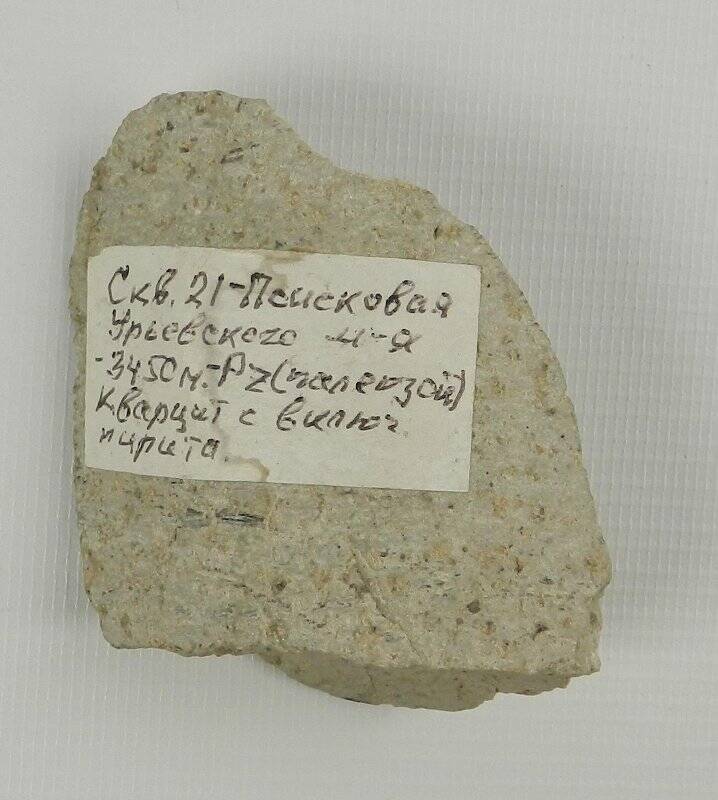 Скв. 21-Поисковая
Урьевского м-я
-3450м.-Pz(палеозой)
Кварцит с включ.
пирита.